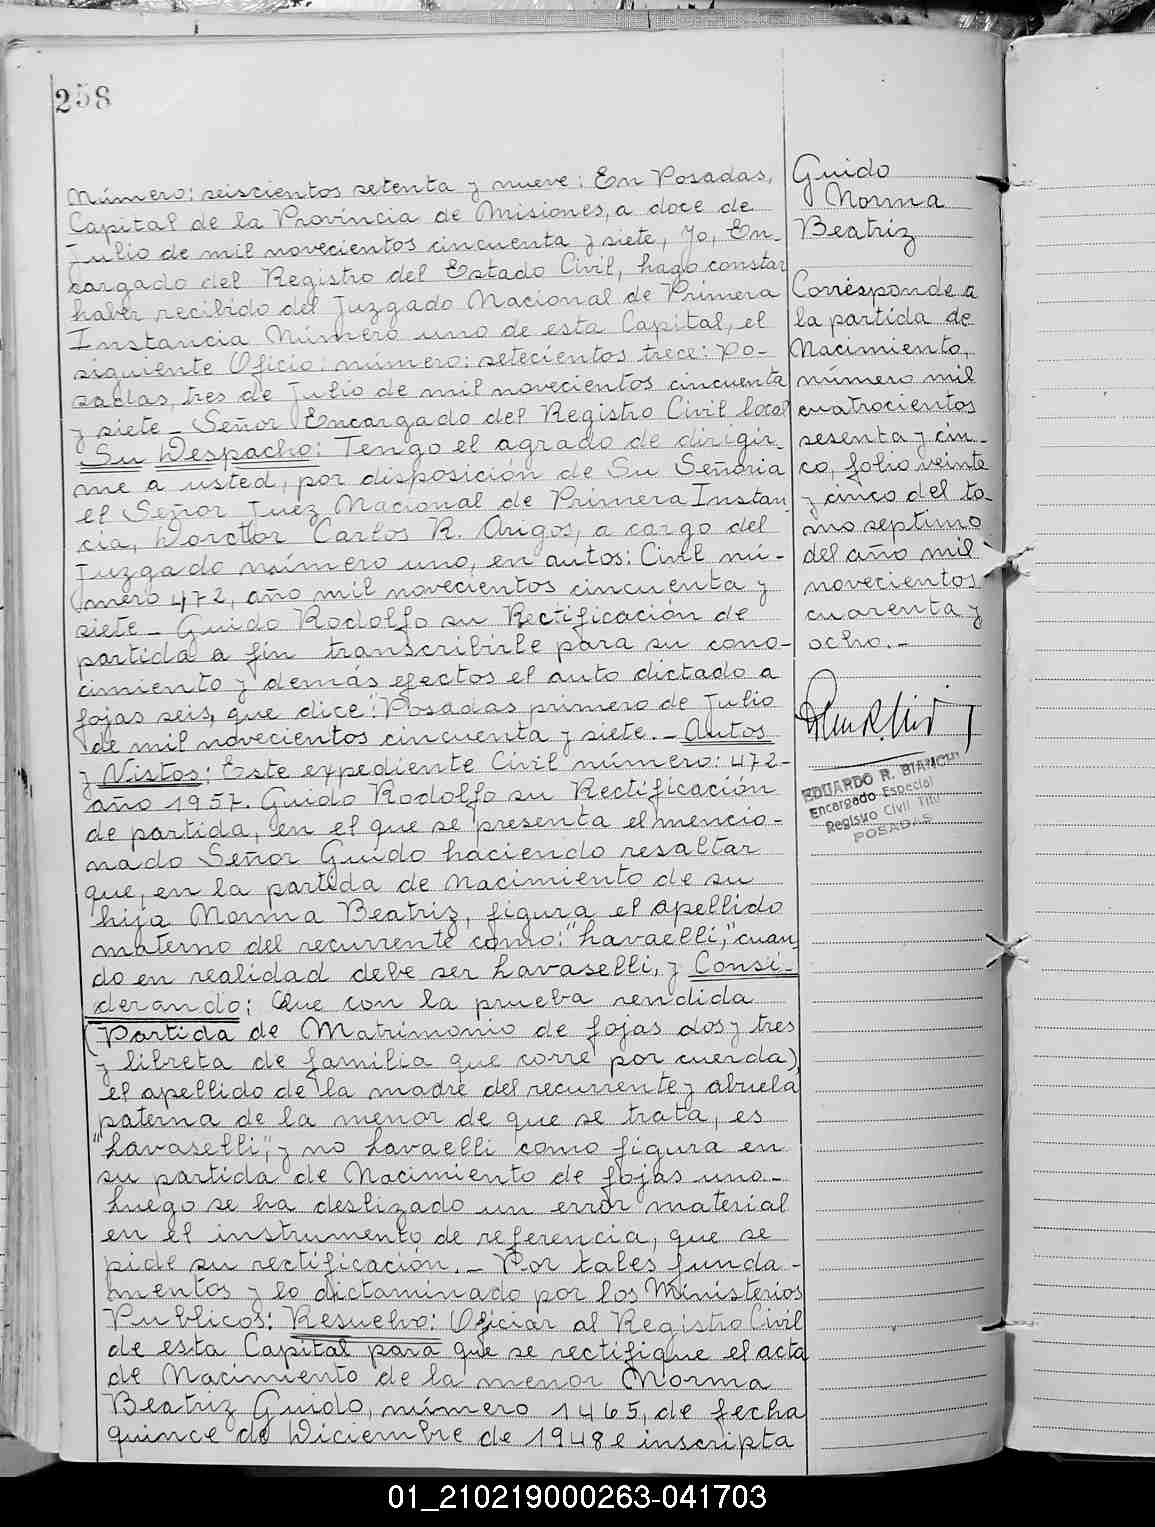 258
Número: seiscientos setenta y nueve: En Posadas,
Capital de la Provincia de Misiones, a doce de
Julio de mil novecientos cincuenta y siete, Yo, En-
cargado del Registro del Estado Civil, hago constar
haber recibido del Juzgado Nacional de Primera
Instancia Número uno de esta Capital, el
siguiente Oficio: número: setecientos trece: Po-
sadas, tres de Julio de mil novecientos cincuenta
y siete_ Señor Encargado del Registro Civil local
Su Despacho: Tengo el agrado de dirigir-
me a usted, por disposición de Su Señoria
el Señor Juez Nacional de Primera Instan-
cia, Doctor Carlos R. Arigos, a cargo del
Juzgado número uno, en autos: Civil nú-
mero 472, año mil novecientos cincuenta y
siete_ Guido Rodolfo su Rectificación de
partida a fin transcribirle para su cono-
cimiento y demás efectos el auto dictado a
fojas seis, que dice: "Posadas primero de Julio
de mil novecientos cincuenta y siete. _ Autos
y Vistos: Este expediente Civil número: 472-
año 1957. Guido Rodolfo su Rectificación
de partida, en el que se presenta el mencio-
nado Señor Guido haciendo resaltar
que, en la partida de Nacimiento de su
hija Norma Beatriz, figura el apellido
materno del recurrente como: "Lavaelli," cuan-
do en realidad debe ser Lavaselli, y Consi-
derando: Que con la prueba rendida
(Partida de Matrimonio de fojas dos y tres
y libreta de familia que corre por cuerda),
el apellido de la madre del recurrente y abuela
paterna de la menor de que se trata, es
"Lavaselli", y no Lavaelli como figura en
su partida de Nacimiento de fojas uno._
Luego se ha deslizado un error material
en el instrumento de referencia, que se
pide su rectificación. _ Por tales funda-
mentos y lo dictaminado por los Ministerios
Publicos: Resuelvo: Oficiar al Registro Civil
de esta Capital para que se rectifique el acta
de Nacimiento de la menor Norma
Beatriz Guido, número 1465, de fecha
quince de Diciembre de 1948 e inscripta
Guido
Norma
Beatriz
Corresponde a
la partida de
Nacimiento,
número mil
cuatrocientos
sesenta y cin-
co, folio veinte
y cinco del to-
mo septimo
del año mil
novecientos
cuarenta y
ocho._
EDUARDO R. BIANCHI
Encargado Especial
Registro Civil Titu
POSADAS
01_210219000263-041703